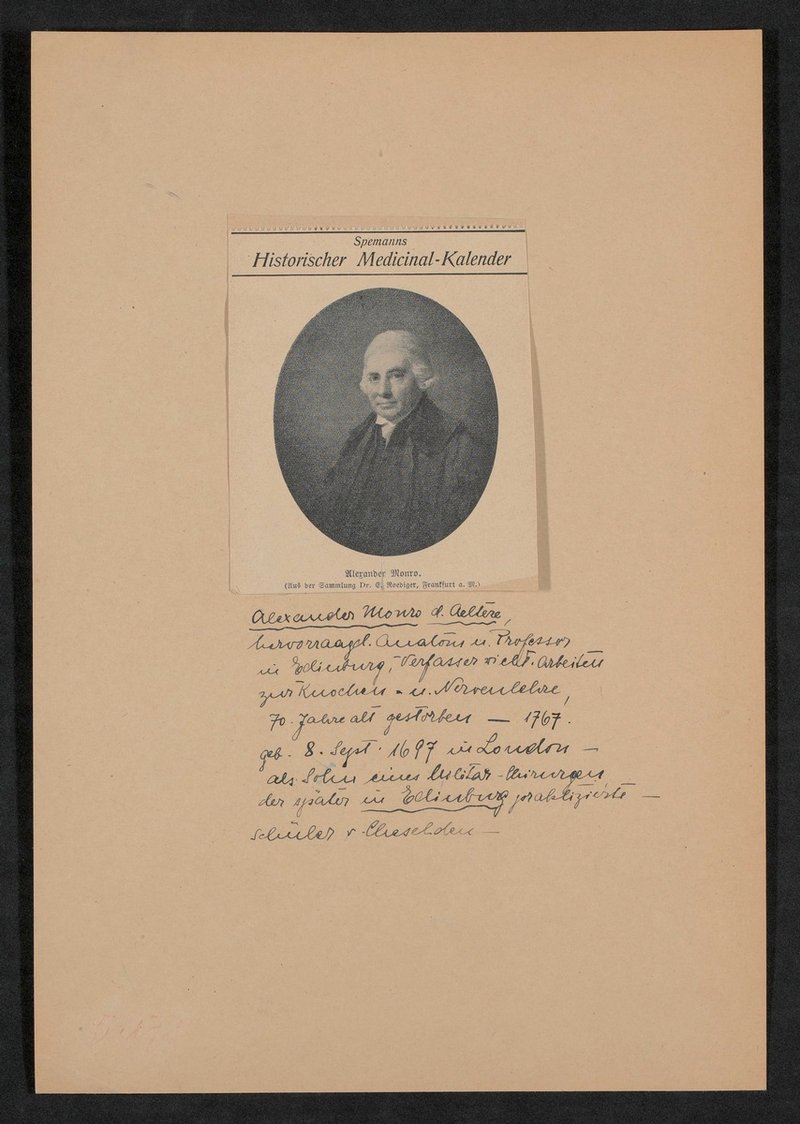 Spemanns
Historischer Medicinal-Kalender
Alexander Monro.
(Aus der Sammlung Dr. E. Roediger, Frankfurt a. M.)
Alexander Monro d. Aeltere,
hervorragd. Anatom u. Professor
in Edinburg, Verfasser wicht. Arbeiten
zur Knochen - u. Nervenlehre,
70. Jahre alt gestorben — 1767.
geb. 8. Sept. 1697 in London —
als Sohn eines Militär-Chirurgen
der später in Edinburg praktizierte —
Schüler v. Cheselden —